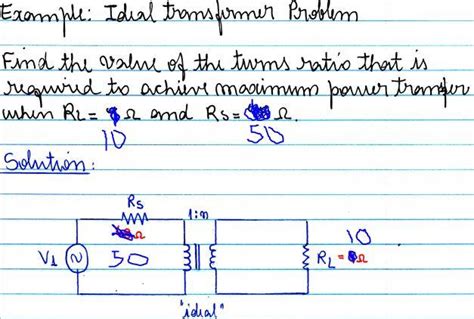 Example: Idial transformer Problem
Find the value of the turns ratio that is
required to achieve maximum power transfer
when RL = Ω and Rs = Ω.
10 50
Solution:
Rs
1:n
Ω
50
V1
10
RL = Ω
"idial"